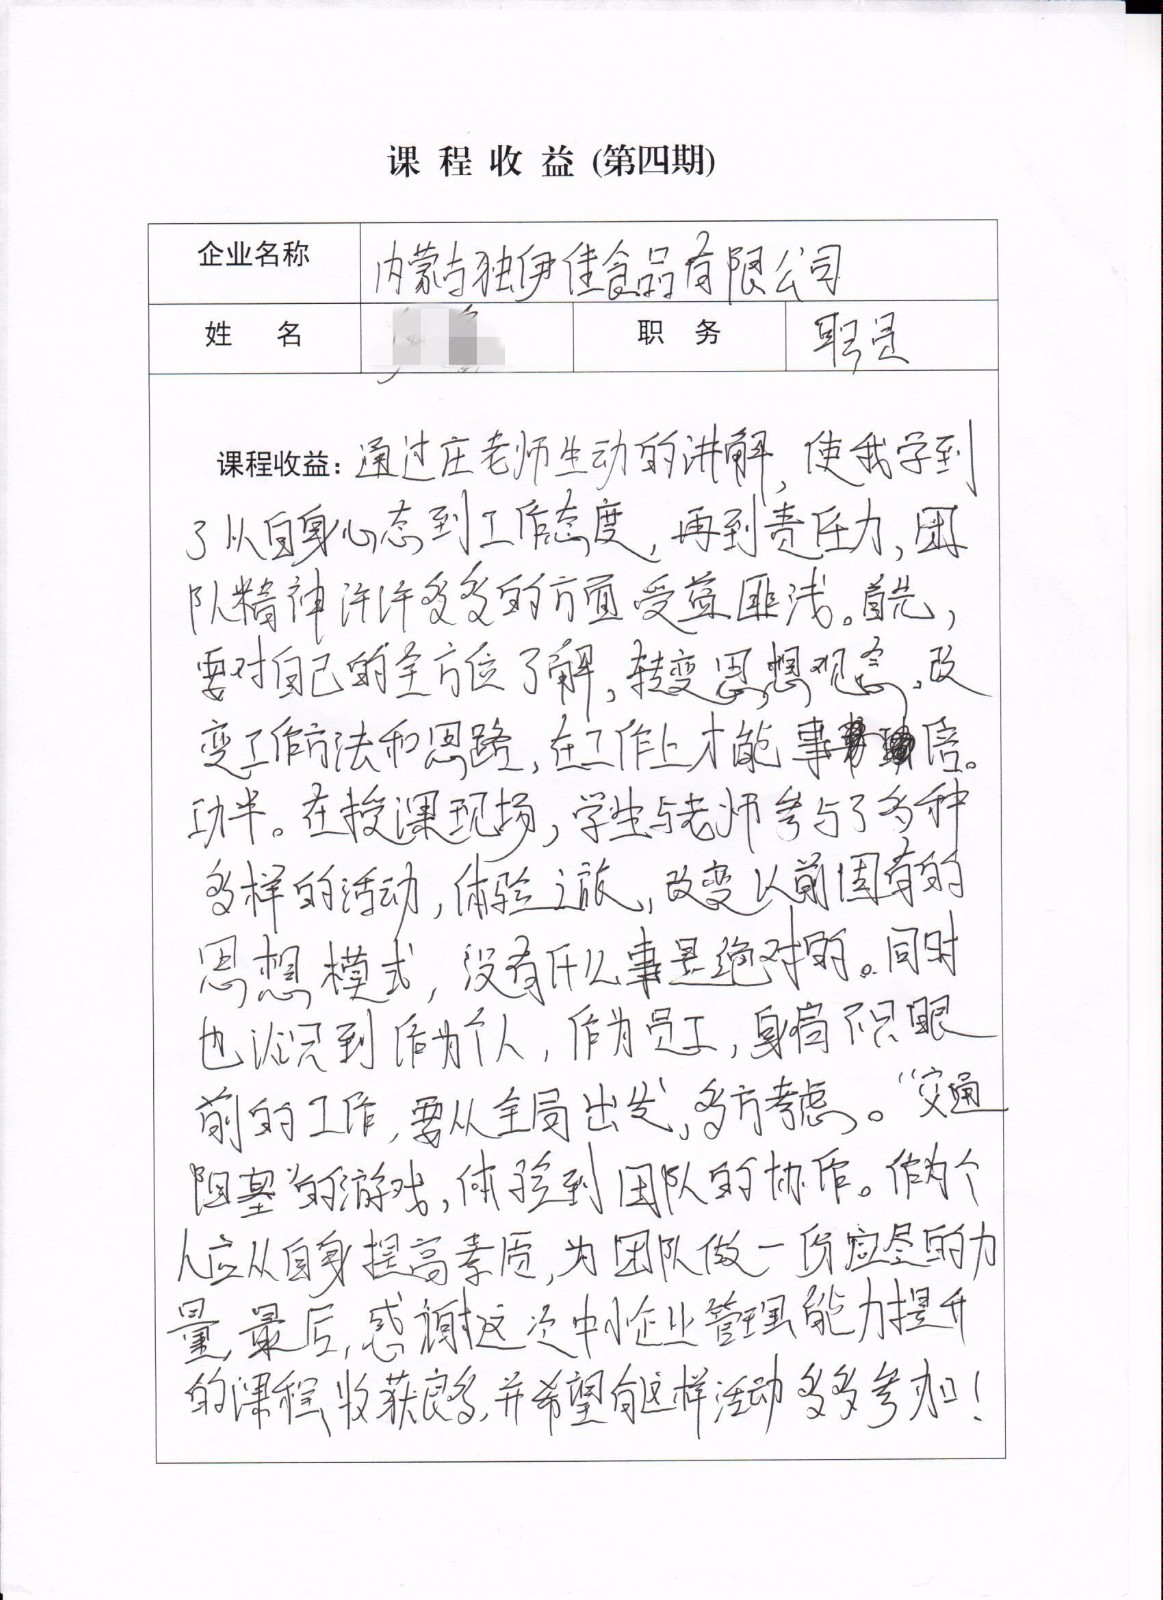 课程收益(第四期)
企业名称 内蒙古独伊佳食品有限公司
姓名 职务 职员
课程收益：通过庄老师生动的讲解，使我学到
了从自身心态到工作态度，再到责任力，团
队精神许许多多的方面受益匪浅。首先，
要对自己的全方位了解，转变思想观念，改
变工作方法和思路，在工作上才能事倍。
功半。在授课现场，学生与老师参与了多种
多样的活动，体验之旅，改变以前固有的
思想模式，没有什么事是绝对的。同时
也认识到作为个人，作为员工，身肩不只眼
前的工作，要从全局出发，多方考虑。“交通
阻塞”的游戏，体验到团队的协作。作为个
人应从自身提高素质，为团队做一份应尽的力
量，最后，感谢这次中小企业管理能力提升
的课程，收获良多，并希望有这样活动多多参加！